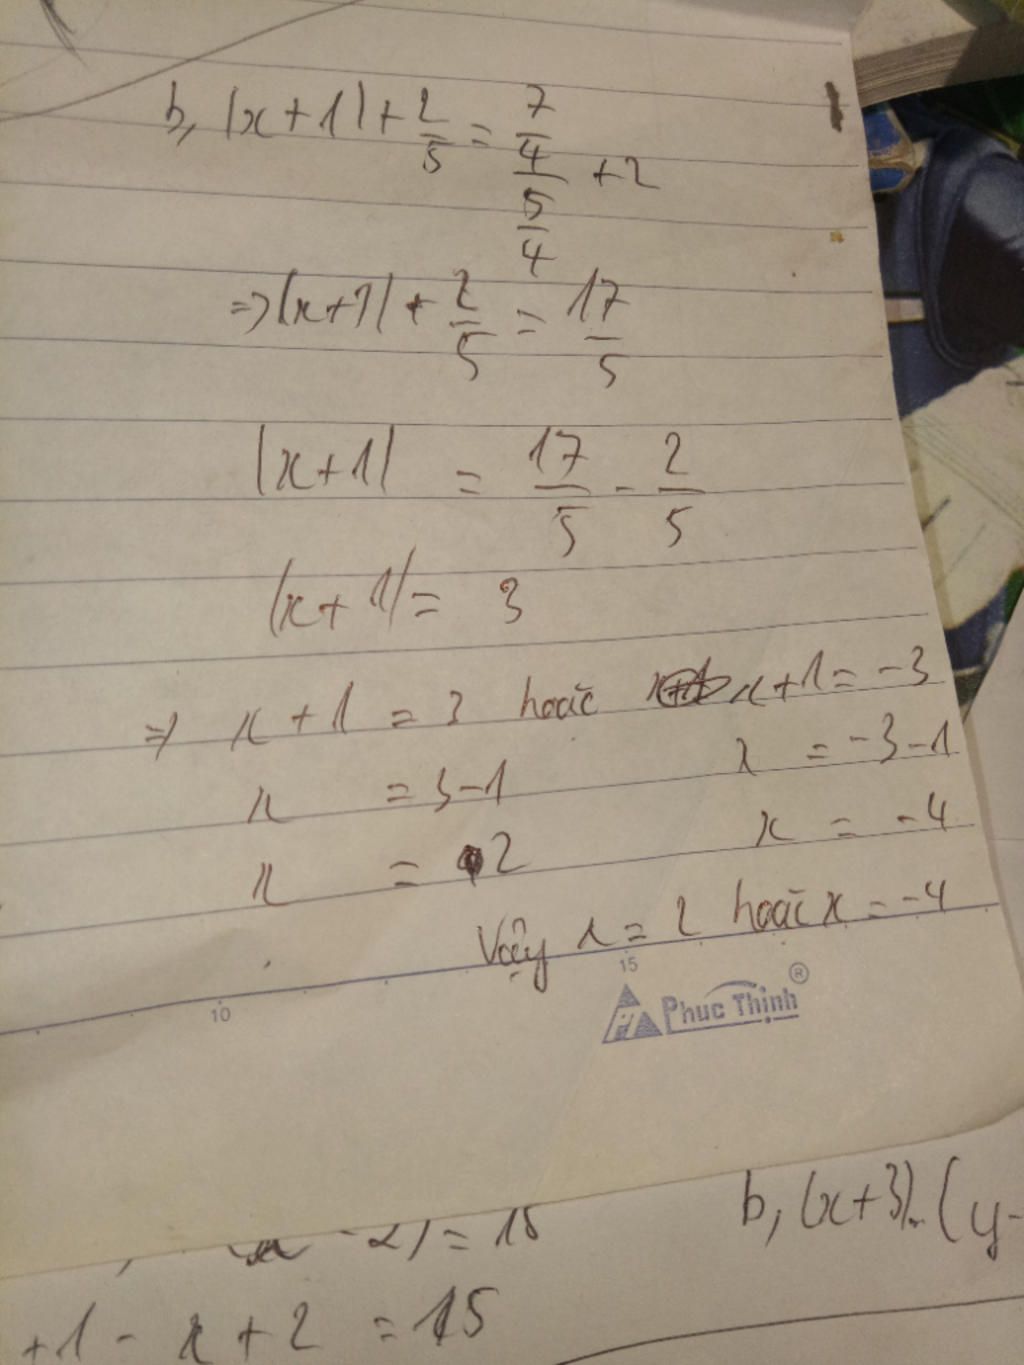 b, |x+1| + 2/5 = (7/4)/(5/4) + 2
=> |x+1| + 2/5 = 17/5
|x+1| = 17/5 - 2/5
|x+1| = 3
=> x + 1 = 3 hoặc x+1 = -3
x = 3-1 x = -3-1
x = 2 x = -4
Vậy x = 2 hoặc x = -4
10 15
Phuc Thịnh ®
b, (x+3).(y-
-2) = 15
+1 - x + 2 = 15